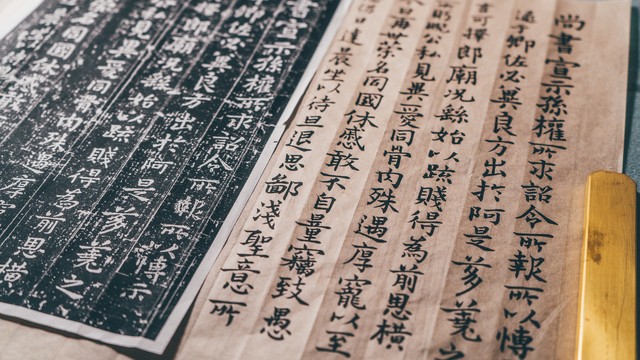 尚書宣示孫權所求詔令所報所以博
逮于卿佐必冀良方出於阿是芻蕘之
可擇郎廟況繇始以疏賤得為前恩橫
睨公私見異愛同骨肉殊遇厚寵以至
日再世榮名同國休慼敢不自量竊致愚
日達晨坐以待旦退思鄙淺聖意所
書宣示孫權所求詔令所報所以博示
卿佐必冀良方出於阿是芻蕘之
擇郎廟況繇始以疏賤得為前恩橫
公私見異愛同骨肉殊遇厚
名同國休慼敢